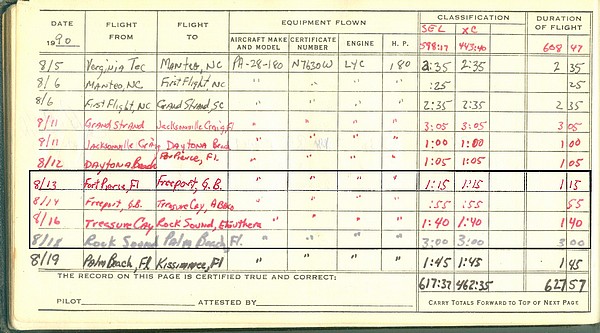 DATE FLIGHT FROM FLIGHT TO EQUIPMENT FLOWN CLASSIFICATION DURATION OF FLIGHT
1990 AIRCRAFT MAKE AND MODEL CERTIFICATE NUMBER ENGINE H. P. SEL XC
598:17 443:40 608 47
8/5 Virginia Tec Manteo, NC PA-28-180 N7630W LYC 180 2:35 2:35 2 35
8/6 Manteo, NC First Flight, NC " " " " :25 25
8/6 First Flight, NC Grand Strand, SC " " " " 2:35 2:35 2 35
8/11 Grand Strand Jacksonville Craig, Fl " " " " 3:05 3:05 3 05
8/11 Jacksonville Craig Daytona Beach " " " " 1:00 1:00 1 00
8/12 Daytona Beach Fort Pierce, Fl. " " " " 1:05 1:05 1 05
8/13 Fort Pierce, Fl Freeport, G.B. " " " " 1:15 1:15 1 15
8/14 Freeport, G.B. Treasure Cay, Abaco " " " " :55 :55 55
8/16 Treasure Cay Rock Sound, Eleuthera " " " " 1:40 1:40 1 40
8/18 Rock Sound Palm Beach, Fl. " " " " 3:00 3:00 3 00
8/19 Palm Beach, Fl Kissimmee, Fl " " " " 1:45 1:45 1 45
THE RECORD ON THIS PAGE IS CERTIFIED TRUE AND CORRECT: 617:37 462:35 627 57
PILOT ATTESTED BY CARRY TOTALS FORWARD TO TOP OF NEXT PAGE